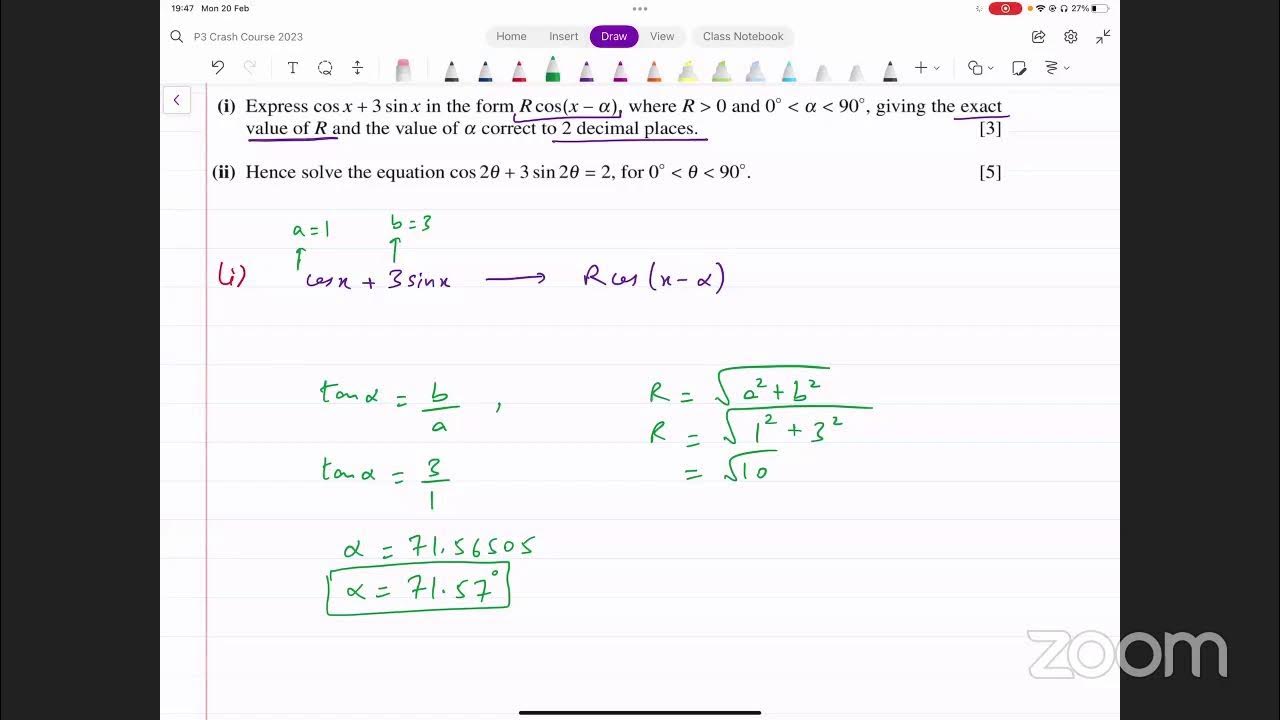 19:47 Mon 20 Feb
27%
P3 Crash Course 2023
Home Insert Draw View Class Notebook
(i) Express cos x + 3 sin x in the form R cos(x − α), where R > 0 and 0° < α < 90°, giving the exact
value of R and the value of α correct to 2 decimal places. [3]
(ii) Hence solve the equation cos 2θ + 3 sin 2θ = 2, for 0° < θ < 90°. [5]
a = 1 b = 3
(i) cosx + 3 sinx → R cos (x − α)
tanα = b/a , R = √(a² + b²)
R = √(1² + 3²)
tanα = 3/1 = √10
α = 71.56505
α = 71.57°
zoom